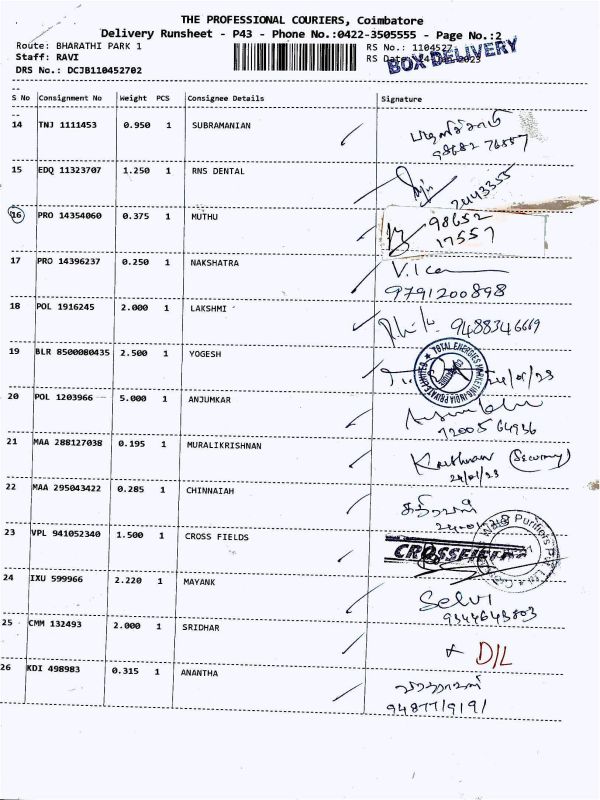 THE PROFESSIONAL COURIERS, Coimbatore
Delivery Runsheet - P43 - Phone No.:0422-3505555 - Page No.:2
Route: BHARATHI PARK 1
RS No.: 1104527
Staff: RAVI
RS Date
BOX DELIVERY
DRS No.: DCJB110452702
S No Consignment No Weight PCS Consignee Details Signature
14 TNJ 1111453 0.950 1 SUBRAMANIAN
98682 76557
15 EDQ 11323707 1.250 1 RNS DENTAL
2443355
16 PRO 14354060 0.375 1 MUTHU
98652
17557
17 PRO 14396237 0.250 1 NAKSHATRA
9791200898
18 POL 1916245 2.000 1 LAKSHMI
9488346669
19 BLR 8500080435 2.500 1 YOGESH
TOTAL ENERGIES MARKETING INDIA PRIVATE LIMITED
24/01/23
20 POL 1203966 5.000 1 ANJUMKAR
72005 64936
21 MAA 288127038 0.195 1 MURALIKRISHNAN
(Security)
24/01/23
22 MAA 295043422 0.285 1 CHINNAIAH
23 VPL 941052340 1.500 1 CROSS FIELDS
24 IXU 599966 2.220 1 MAYANK
Selvi
9344643803
25 CMM 132493 2.000 1 SRIDHAR
D/L
26 KDI 498983 0.315 1 ANANTHA
9487719191